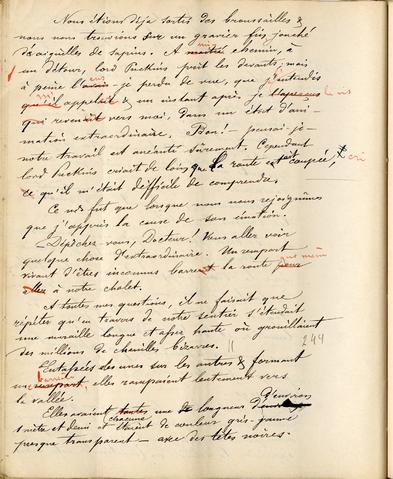 Nous étions déjà sortis des broussailles &
nous nous trouvions sur un gravier fin, jonché
d'aiguilles de sapins. A mi chemin, à
un détour, lord Puckins prit les devants; mais
à peine l'eus-je perdu de vue, que j'entendis
qu'il appelait & un instant après, je l'aperçus le vis
qui revenait vers moi. Dans un état d'ani-
mation extraordinaire. Bon! - pensai-je -
notre travail est anéanti sûrement. Cependant
lord Puckins criait de loin que la route était coupée,
ce qu'il m'était difficile de comprendre.
Ce ne fut que lorsque nous nous rejoignîmes
que j'appris la cause de son émotion.
- Dépêchez-vous, Docteur! Vous allez voir
quelque chose d'extraordinaire. Un rempart
vivant d'êtres inconnus barre la route qui mène
à notre chalet.
A toutes mes questions, il ne faisait que
répéter qu'en travers de notre sentier s'étendait
une muraille longue et assez haute où grouillaient
des millions de chenilles bizarres. 244
Entassées les unes sur les autres & formant
un rempart, elles rampaient lentement vers
la vallée.
Elles avaient chacune une longueur d'environ
1 mètre et demi et étaient de couleur gris-jaune
presque transparent - avec des têtes noires.